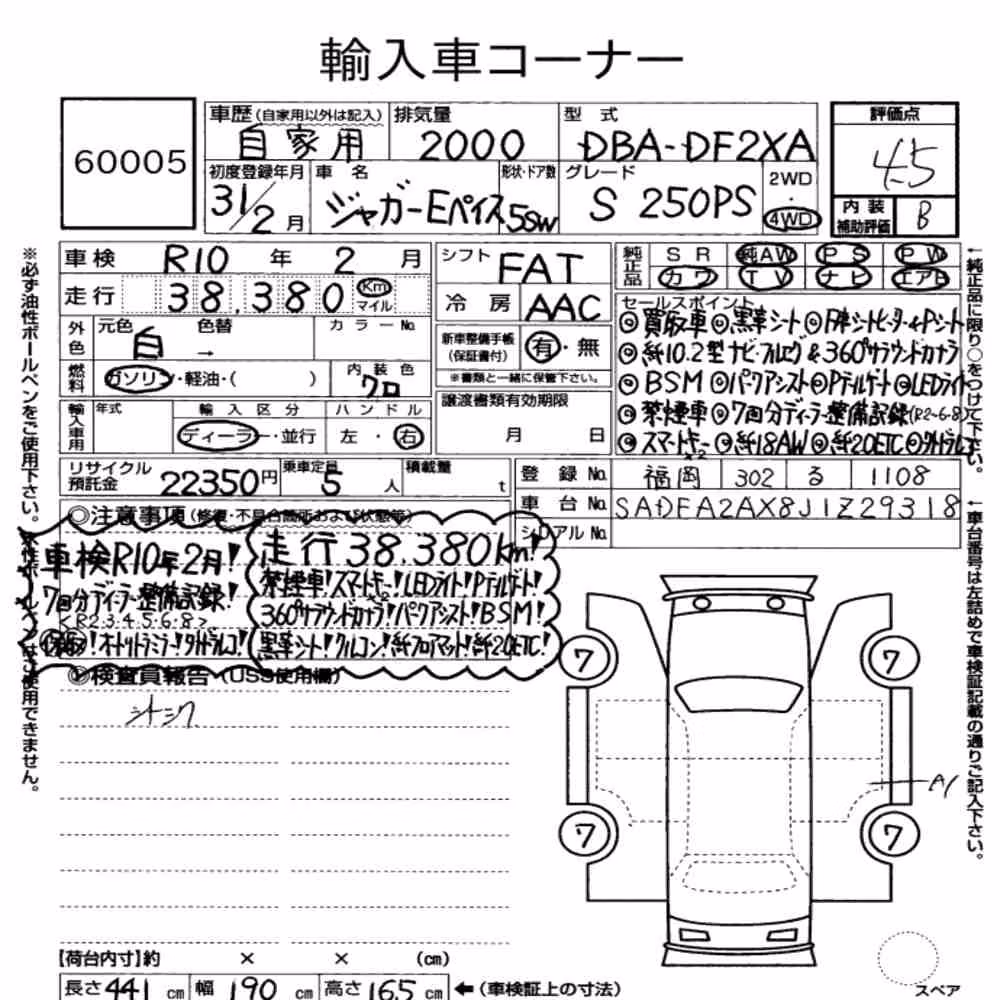 輸入車コーナー
60005
車歴(自家用以外は記入) 自家用
排気量 2000
型式 DBA-DF2XA
評価点 4.5
初度登録年月 31/2月
車名 ジャガーEペイス
形状・ドア数 5SW
グレード S 250PS
2WD・4WD
内装補助評価 B
車検 R10年2月
シフト FAT
純正品 SR 純AW PS PW
カワ TV ナビ エアB
走行 38,380 Km マイル
冷房 AAC
セールスポイント
◎買取車◎黒革シート◎F席シートヒーター&Pシート
◎純10.2型ナビ・フルセグ&360°サラウンドカメラ
◎BSM◎パークアシスト◎Pテルゲート◎LEDライト
◎禁煙車◎7回分ディーラー整備記録(R2~6・8)
◎スマートキー×2◎純18AW◎純20ETC◎外ドラレコ
外色 元色 白 色替 → カラーNo.
新車整備手帳(保証書付) 有・無
※書類と一緒に保管下さい。
燃料 ガソリン・軽油・( )
内装色 クロ
譲渡書類有効期限 月 日
輸入車用 年式 輸入区分 ディーラー・並行
ハンドル 左・右
リサイクル預託金 22350円
乗車定員 5人
積載量 t
登録No. 福岡 302 る 1108
車台No. SADFA2AX8J1Z29318
シリアルNo.
◎注意事項(修復・不具合箇所および状態等)
車検R10年2月!
7回分ディーラー整備記録!
<R2.3.4.5.6.8>
買取!オートトランミラー!外ドラレコ!
走行38,380km!
禁煙車!スマートキー×2!LEDライト!Pテルゲート!
360°サラウンドカメラ!パークアシスト!BSM!
黒革シート!クルコン!純フロアマット!純20ETC!
◎検査員報告(USS使用欄)
シートシワ
7
7
7
7
A1
【荷台内寸】約 × × (cm)
長さ441cm 幅190cm 高さ165cm ←(車検証上の寸法)
スペア
※必ず油性ボールペンをご使用下さい。
←純正品に限り○をつけて下さい。
←車台番号は左詰めで車検証記載の通りご記入下さい。